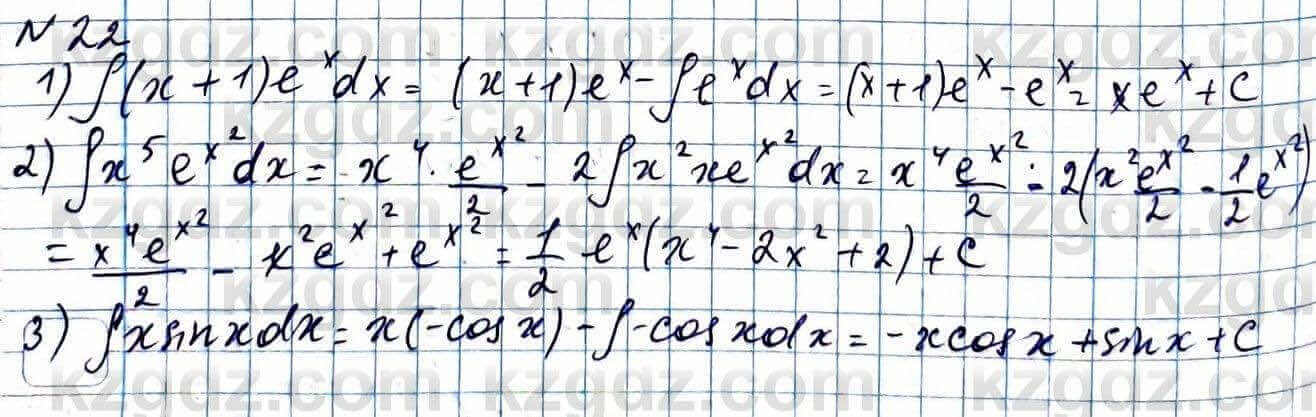 N 22
1) ∫(x + 1)e^x dx = (x+1)e^x - ∫e^x dx = (x+1)e^x - e^x = xe^x + C
2) ∫x^5 e^{x^2} dx = x^4 · e^{x^2}/2 - 2∫x^2 xe^{x^2} dx = x^4 e^{x^2}/2 - 2(x^2 e^{x^2}/2 - 1/2 e^{x^2})
= x^4 e^{x^2}/2 - x^2 e^{x^2} + e^{x^2} = 1/2 e^x (x^4 - 2x^2 + 2) + C
3) ∫x sin x dx = x(-cos x) - ∫-cos x dx = -x cos x + sin x + C